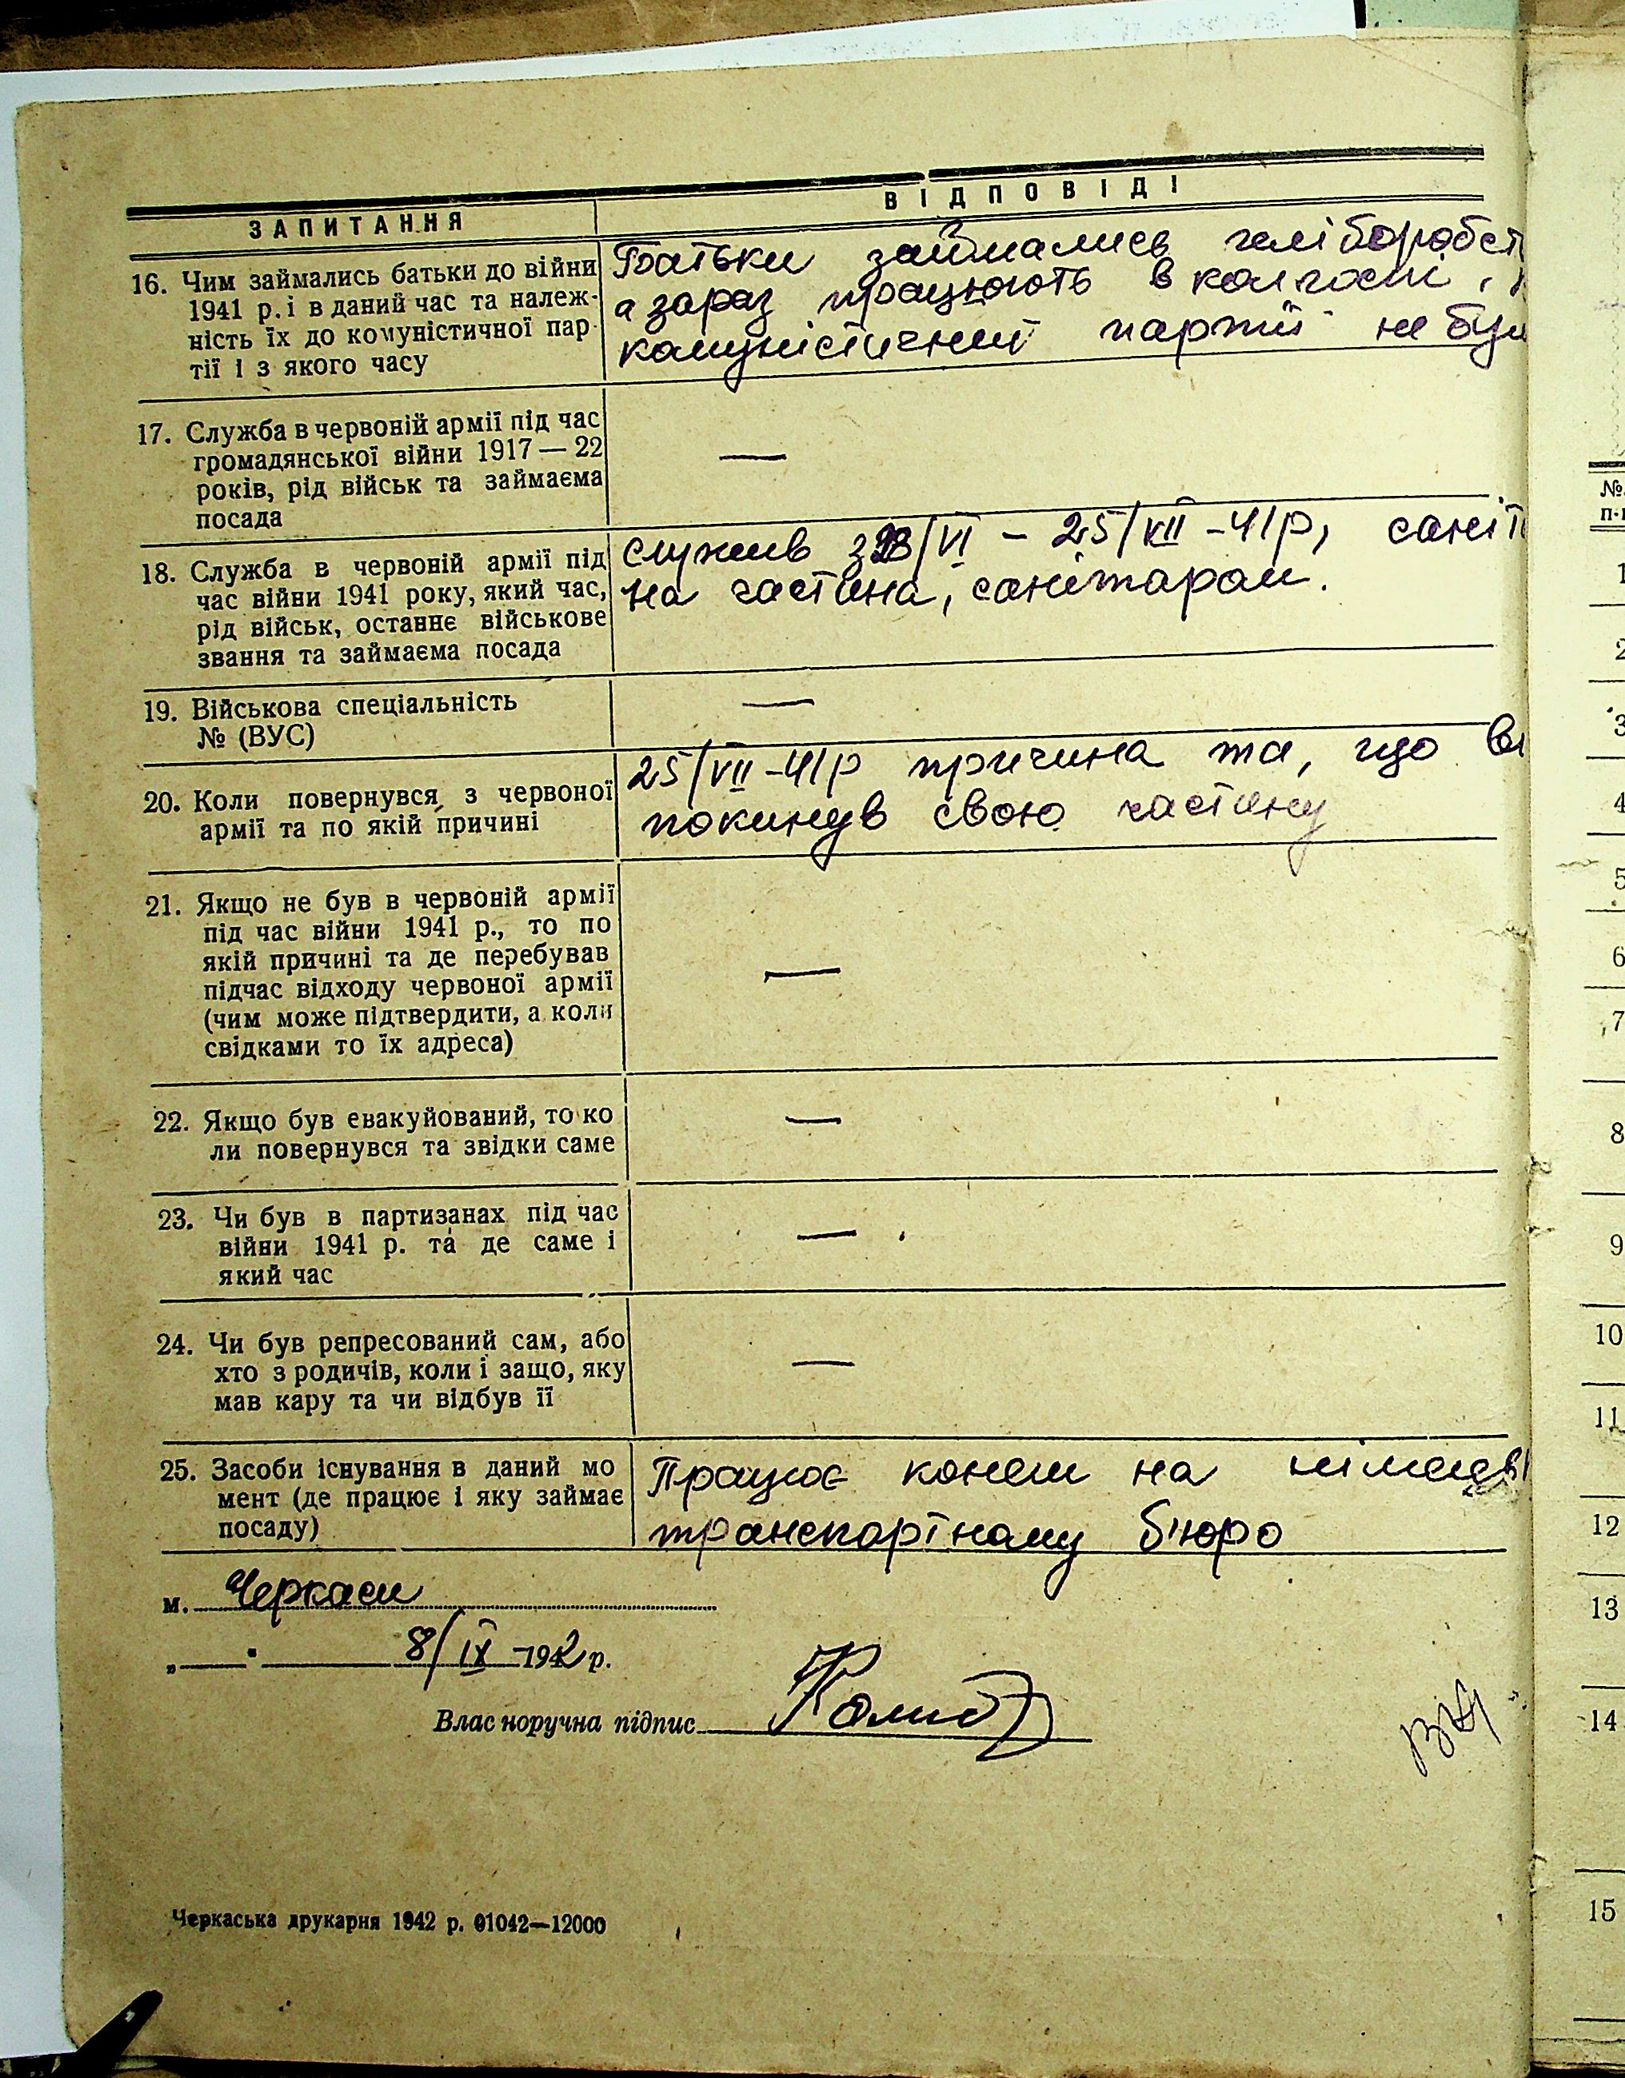 ЗАПИТАННЯ
ВІДПОВІДІ
16. Чим займались батьки до війни
1941 р. і в даний час та належ-
ність їх до комуністичної пар-
тії і з якого часу
Батьки займались хліборобст
а зараз працюють в колгоспі,
комуністичний партії не бул
17. Служба в червоній армії під час
громадянської війни 1917 — 22
років, рід військ та займаєма
посада
—
18. Служба в червоній армії під
час війни 1941 року, який час,
рід військ, останнє військове
звання та займаєма посада
Служив з 28/VI – 25/VII –41р, саніт
на частина, санітаром.
19. Військова спеціальність
№ (ВУС)
—
20. Коли повернувся з червоної
армії та по якій причині
25/VII –41р причина та, що
покинув свою частину
21. Якщо не був в червоній армії
під час війни 1941 р., то по
якій причині та де перебував
підчас відходу червоної армії
(чим може підтвердити, а коли
свідками то їх адреса)
—
22. Якщо був евакуйований, то ко
ли повернувся та звідки саме
—
23. Чи був в партизанах під час
війни 1941 р. та де саме і
який час
—
24. Чи був репресований сам, або
хто з родичів, коли і защо, яку
мав кару та чи відбув її
—
25. Засоби існування в даний мо
мент (де працює і яку займає
посаду)
Працює конем на німецьк
транспортному б'юро
м. Черкаси
„ " 8/IX –1942 р.
Власноручна підпис
Черкаська друкарня 1942 р. 01042—12000
№
п-п
1
2
3
4
5
6
7
8
9
10
11
12
13
14
15